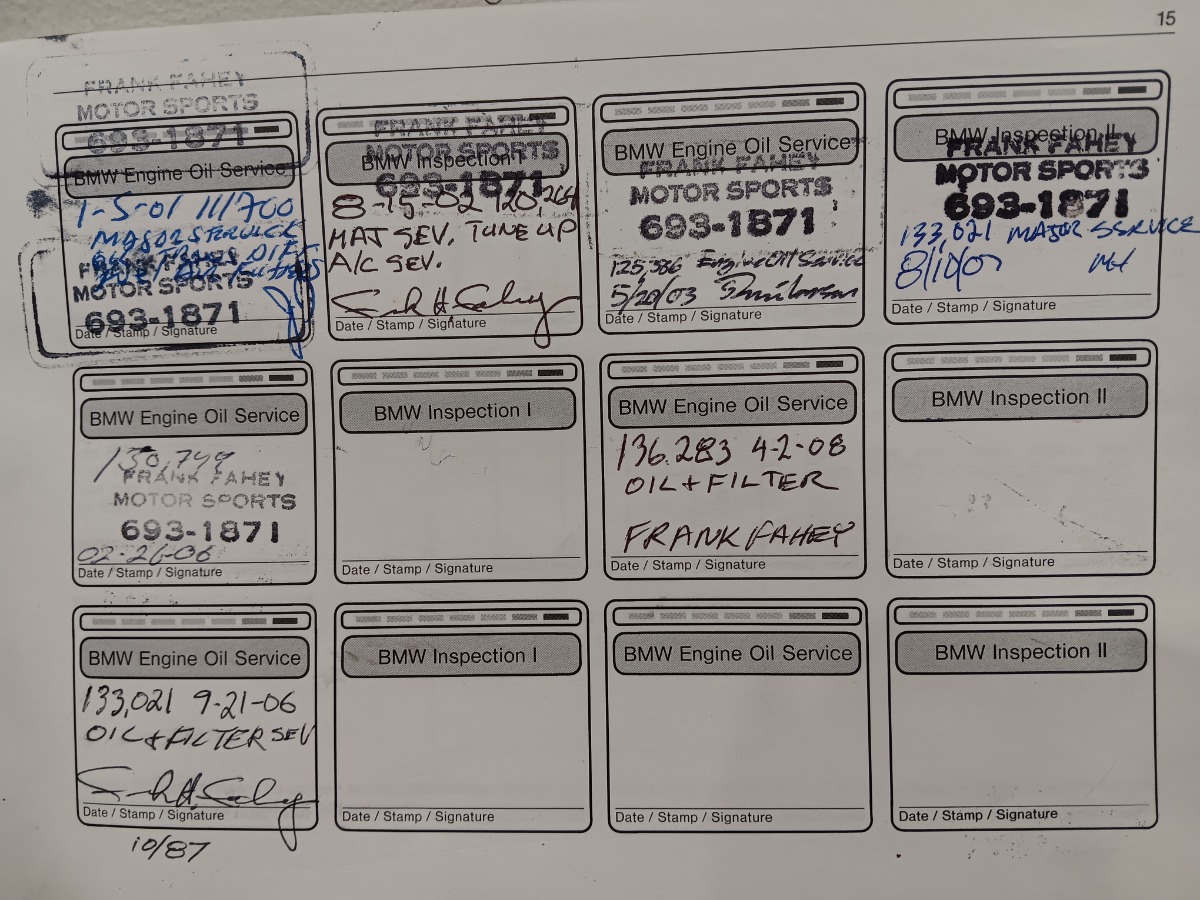 15
FRANK FAHEY
MOTOR SPORTS
693-1871
BMW Engine Oil Service
1-5-01 111700
MAJOR SERVICE
MOTOR SPORTS
693-1871
Date / Stamp / Signature
FRANK FAHEY
MOTOR SPORTS
693-1871
BMW Inspection I
8-15-02 120,264
MAJ SEV, TUNE UP
A/C SEV.
Date / Stamp / Signature
BMW Engine Oil Service
FRANK FAHEY
MOTOR SPORTS
693-1871
125,386 Engine Oil Service
5/20/03
Date / Stamp / Signature
BMW Inspection II
FRANK FAHEY
MOTOR SPORTS
693-1871
133,021 MAJOR SERVICE
8/10/07
Date / Stamp / Signature
BMW Engine Oil Service
130,749
FRANK FAHEY
MOTOR SPORTS
693-1871
02-26-06
Date / Stamp / Signature
BMW Inspection I
Date / Stamp / Signature
BMW Engine Oil Service
136.283 4-2-08
OIL + FILTER
FRANK FAHEY
Date / Stamp / Signature
BMW Inspection II
Date / Stamp / Signature
BMW Engine Oil Service
133,021 9-21-06
OIL + FILTER SEV
Date / Stamp / Signature
BMW Inspection I
Date / Stamp / Signature
BMW Engine Oil Service
Date / Stamp / Signature
BMW Inspection II
Date / Stamp / Signature
10/87